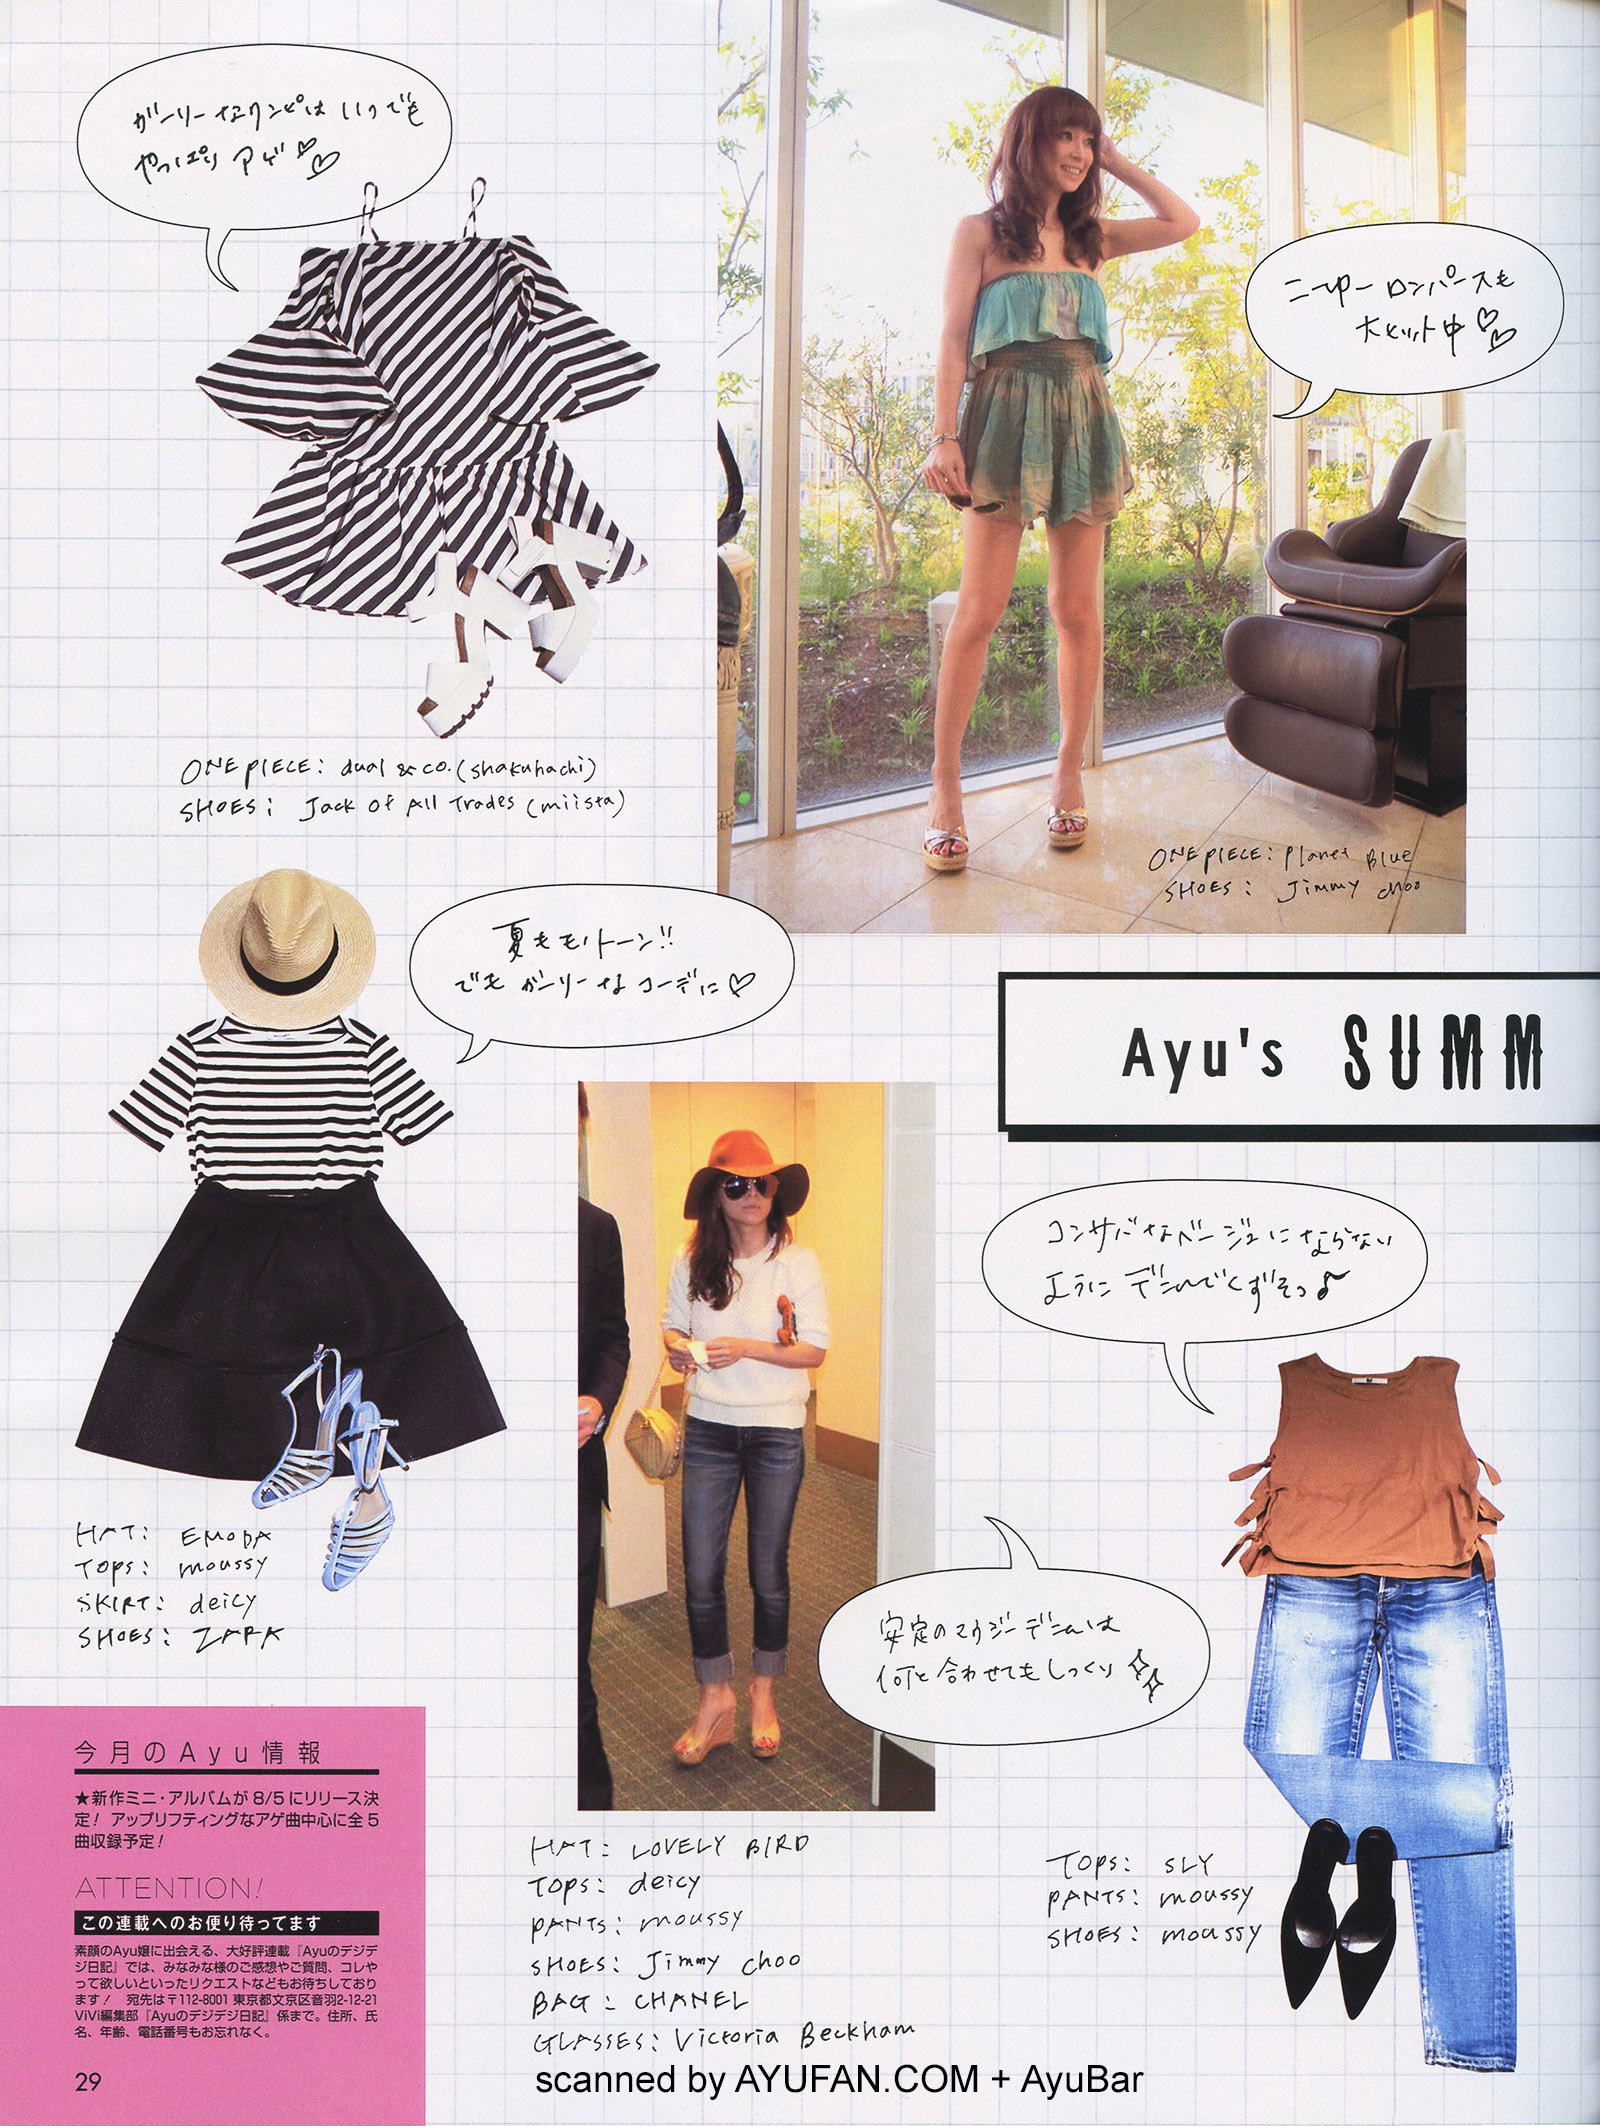 ガーリーなワンピはいつでも
やっぱりアゲ♡♡
ONE PIECE: dual & co. (shakuhachi)
SHOES: Jack of All Trades (miista)
ニューロンパースも
大ヒット中♡♡
ONE PIECE: Planet Blue
SHOES: Jimmy choo
夏もモノトーン!!
でもガーリーなコーデに♡
HAT: EMODA
TOPS: moussy
SKIRT: deicy
SHOES: ZARA
Ayu's SUMM
コンサバなベージュにならない
ようにデニムでくずそっ♪
安定のマウジーデニムは
何と合わせてもしっくり
HAT: LOVELY BIRD
TOPS: deicy
PANTS: moussy
SHOES: Jimmy choo
BAG: CHANEL
GLASSES: Victoria Beckham
TOPS: SLY
PANTS: moussy
SHOES: moussy
今月のAyu情報
★新作ミニ・アルバムが8/5にリリース決
定！ アップリフティングなアゲ曲中心に全5
曲収録予定！
ATTENTION!
この連載へのお便り待ってます
素顔のAyu嬢に出会える、大好評連載『Ayuのデジデ
ジ日記』では、みなみな様のご感想やご質問、コレや
って欲しいといったリクエストなどもお待ちしており
ます！ 宛先は〒112-8001 東京都文京区音羽2-12-21
ViVi編集部『Ayuのデジデジ日記』係まで。住所、氏
名、年齢、電話番号もお忘れなく。
29
scanned by AYUFAN.COM + AyuBar